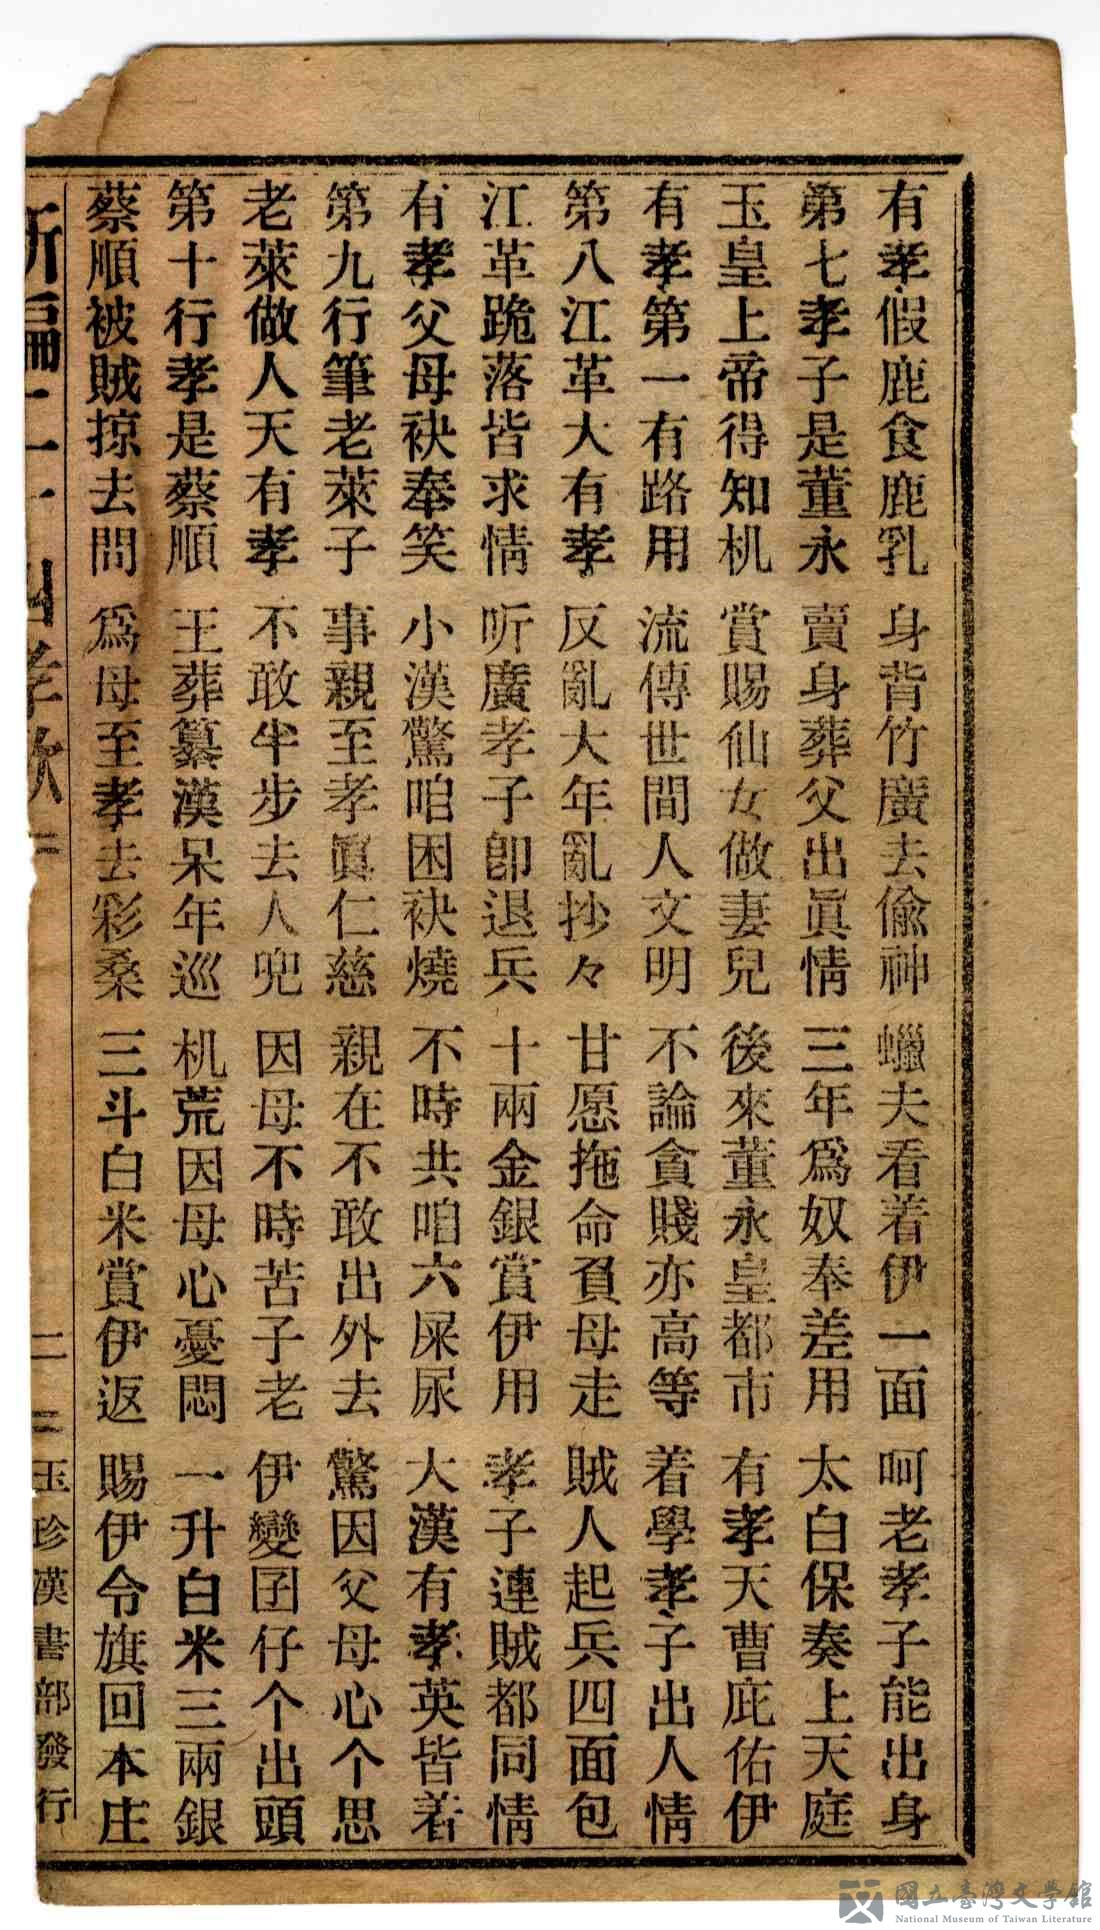 有孝假鹿食鹿乳　身背竹廣去偸神　蠟夫看着伊一面　呵老孝子能出身
第七孝子是董永　賣身葬父出眞情　三年爲奴奉差用　太白保奏上天庭
玉皇上帝得知机　賞賜仙女做妻兒　後來董永皇都市　有孝天曹庇佑伊
有孝第一有路用　流傳世間人文明　不論貪賤亦高等　着學孝子出人情
第八江革大有孝　反亂大年亂抄々　甘愿拖命負母走　賊人起兵四面包
江革跪落皆求情　听廣孝子卽退兵　十兩金銀賞伊用　孝子連賊都同情
有孝父母袂奉笑　小漢驚咱困袂燒　不時共咱六屎尿　大漢有孝英皆着
第九行筆老萊子　事親至孝眞仁慈　親在不敢出外去　驚因父母心个思
老萊做人天有孝　不敢半步去人兜　因母不時苦子老　伊變囝仔个出頭
第十行孝是蔡順　王葬纂漢呆年巡　机荒因母心憂悶　一升白米三兩銀
蔡順被賊掠去問　爲母至孝去彩桑　三斗白米賞伊返　賜伊令旗回本庄
新編二十四孝歌　二　二　玉珍漢書部發行
國立臺灣文學館
National Museum of Taiwan Literature